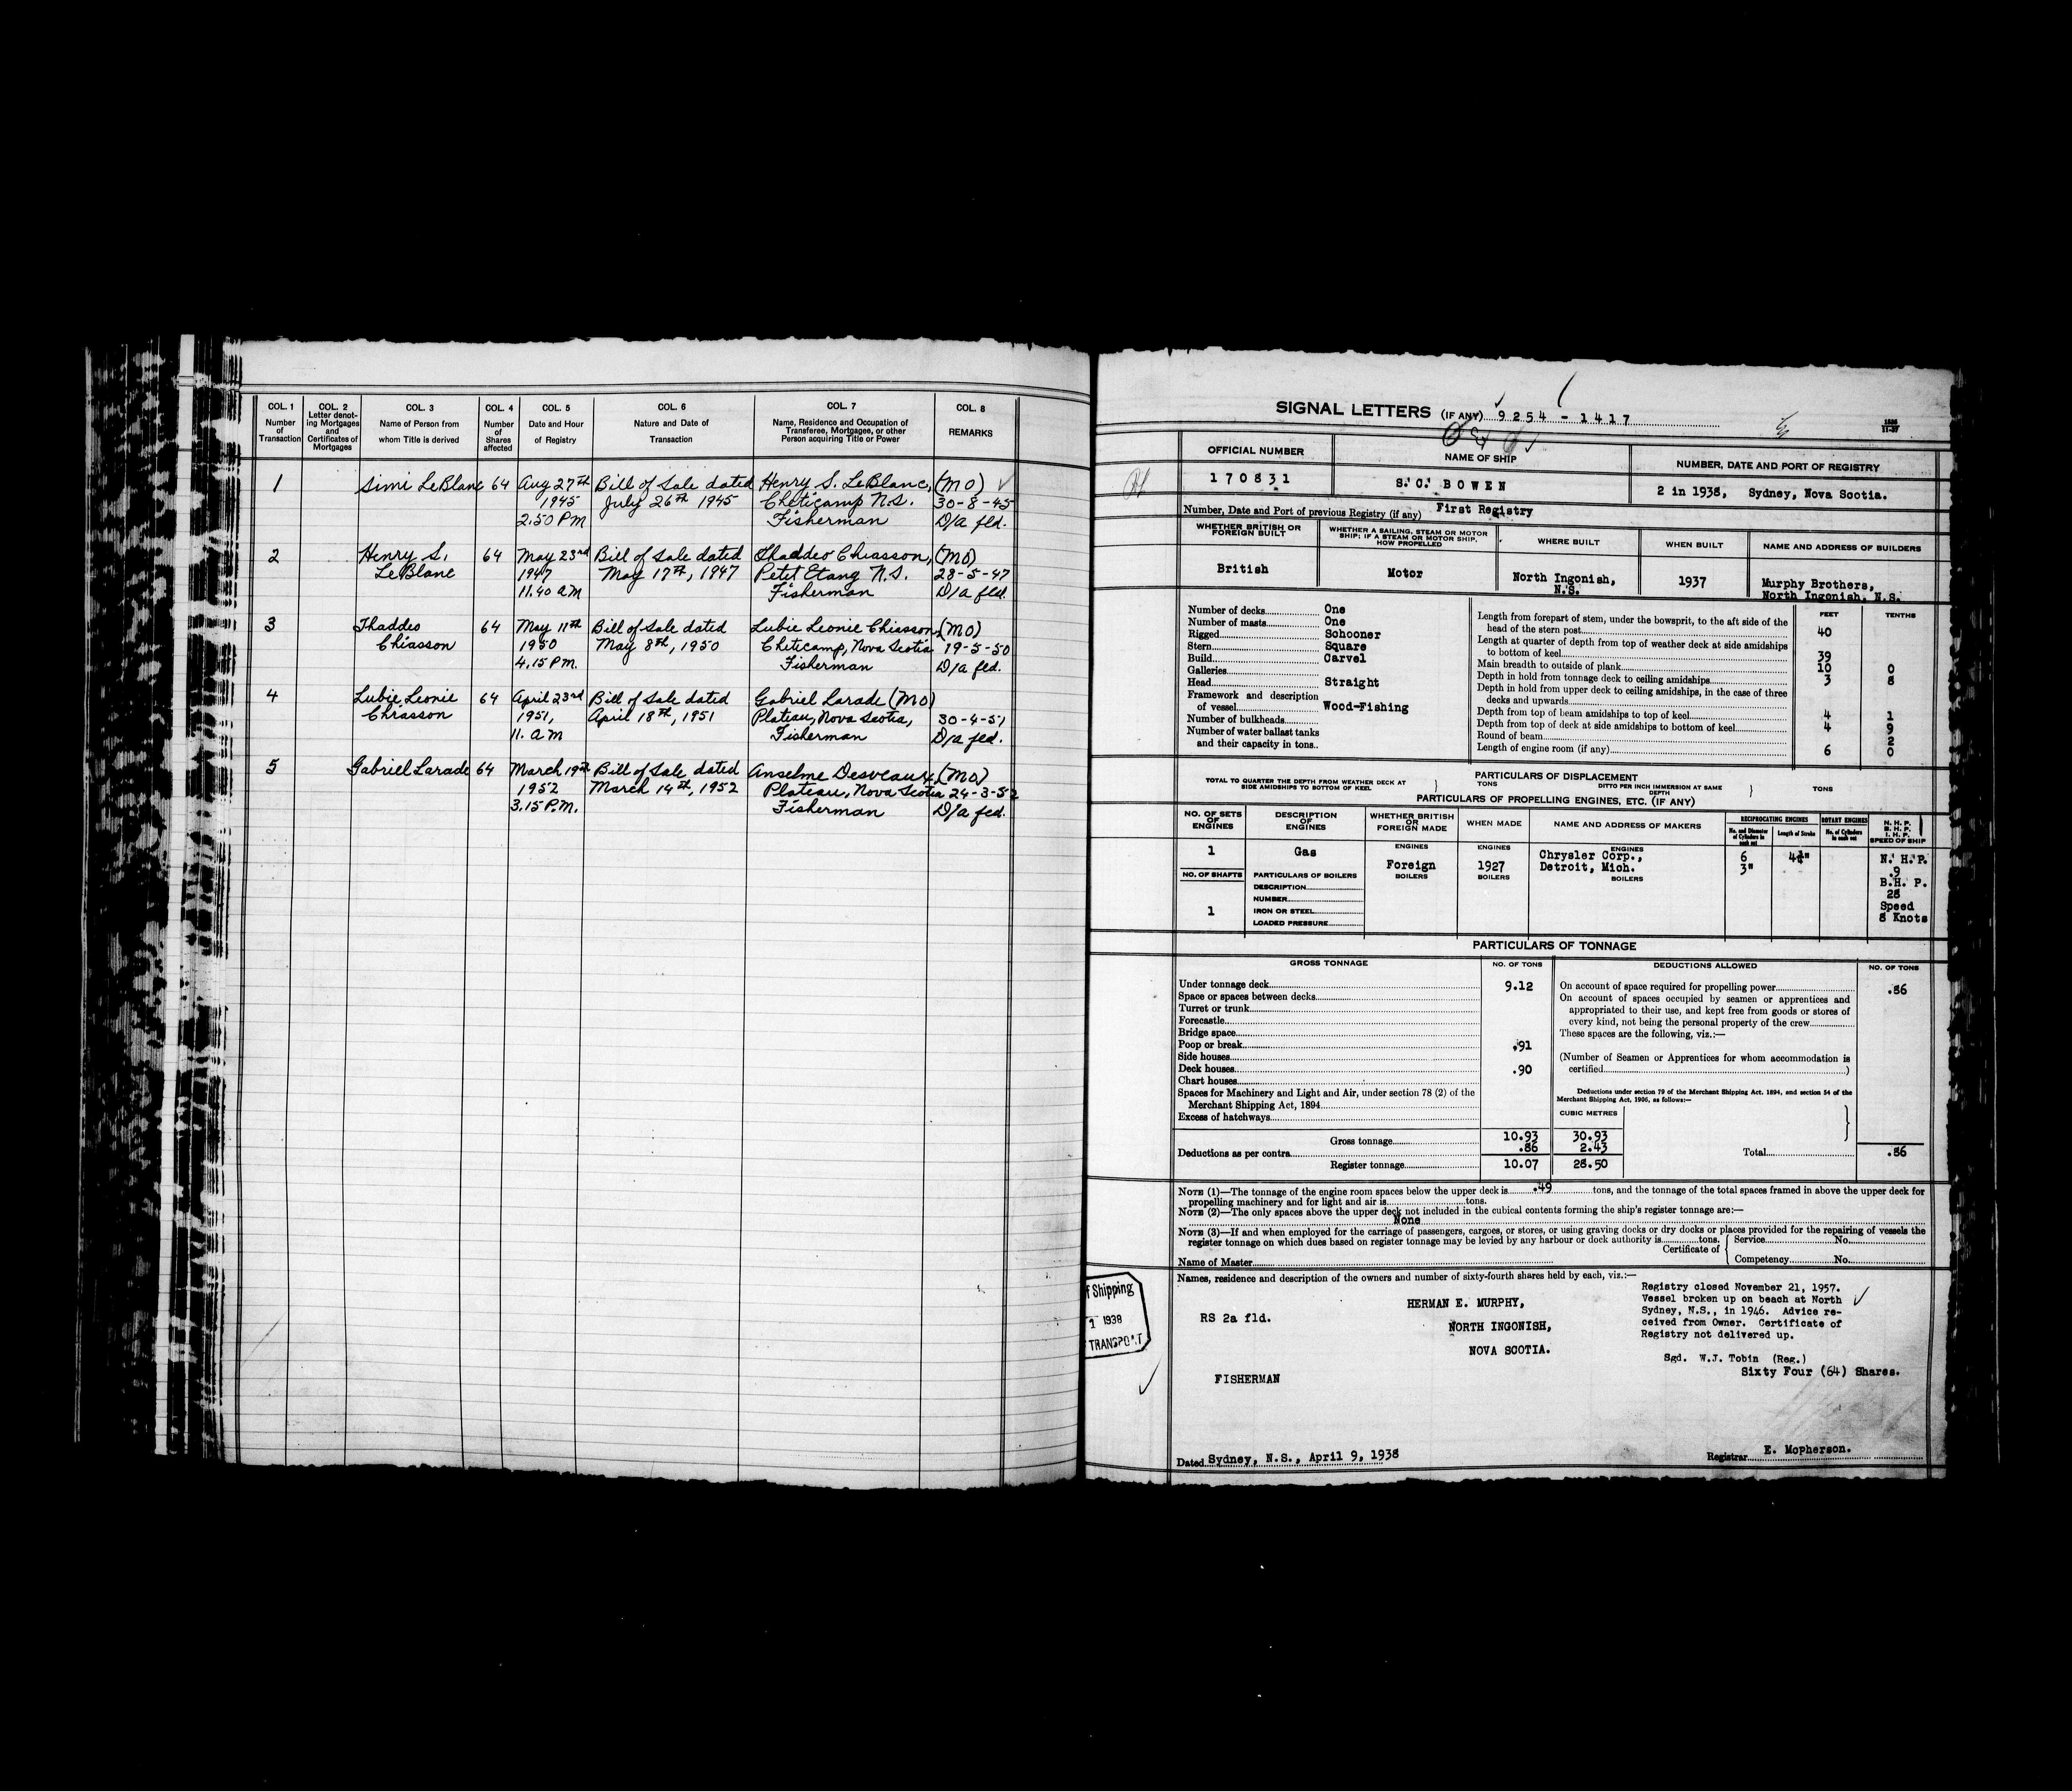 COL. 1 Number of Transaction
COL. 2 Letter denoting Mortgages and Certificates of Mortgages
COL. 3 Name of Person from whom Title is derived
COL. 4 Number of Shares affected
COL. 5 Date and Hour of Registry
COL. 6 Nature and Date of Transaction
COL. 7 Name, Residence and Occupation of Transferee, Mortgagee, or other Person acquiring Title or Power
COL. 8 REMARKS
1 Simi LeBlanc 64 Aug 27th Bill of Sale dated Henry S. LeBlanc, (MO)
1945 July 26th 1945 Cheticamp N.S. 30-8-45
2.50 PM Fisherman D/a fld.
2 Henry S. 64 May 23rd Bill of Sale dated Thaddeo Chiasson, (MO)
LeBlanc 1947 May 17th, 1947 Petit Etang N.S. 28-5-47
11.40 AM Fisherman D/a fld.
3 Thaddeo 64 May 11th Bill of Sale dated Lubie Leonie Chiasson, (MO)
Chiasson 1950 May 8th, 1950 Cheticamp, Nova Scotia 19-5-50
4.15 PM. Fisherman D/a fld.
4 Lubie Leonie 64 April 23rd Bill of Sale dated Gabriel Larade (MO)
Chiasson 1951, April 18th, 1951 Plateau, Nova Scotia, 30-4-51
11. AM Fisherman D/a fld.
5 Gabriel Larade 64 March 19th Bill of Sale dated Anselme Desveaux, (MO)
1952 March 14th, 1952 Plateau, Nova Scotia 24-3-52
3.15 P.M. Fisherman D/a fld.
SIGNAL LETTERS (IF ANY) 9254 - 1417
OFFICIAL NUMBER NAME OF SHIP NUMBER, DATE AND PORT OF REGISTRY
170831 S. C. BOWEN 2 in 1938, Sydney, Nova Scotia.
Number, Date and Port of previous Registry (if any) First Registry
WHETHER BRITISH OR FOREIGN BUILT
WHETHER A SAILING, STEAM OR MOTOR SHIP; IF A STEAM OR MOTOR SHIP, HOW PROPELLED
WHERE BUILT WHEN BUILT NAME AND ADDRESS OF BUILDERS
British Motor North Ingonish, N.S. 1937 Murphy Brothers, North Ingonish, N.S.
Number of decks One
Number of masts One
Rigged Schooner
Stern Square
Build Carvel
Galleries
Head Straight
Framework and description of vessel Wood-Fishing
Number of bulkheads
Number of water ballast tanks
and their capacity in tons
FEET TENTHS
Length from forepart of stem, under the bowsprit, to the aft side of the
head of the stern post 40
Length at quarter of depth from top of weather deck at side amidships
to bottom of keel 39
Main breadth to outside of plank 10 0
Depth in hold from tonnage deck to ceiling amidships 3 8
Depth in hold from upper deck to ceiling amidships, in the case of three
decks and upwards
Depth from top of beam amidships to top of keel 4 1
Depth from top of deck at side amidships to bottom of keel 4 9
Round of beam 2
Length of engine room (if any) 6 0
PARTICULARS OF DISPLACEMENT
TOTAL TO QUARTER THE DEPTH FROM WEATHER DECK AT SIDE AMIDSHIPS TO BOTTOM OF KEEL TONS
DITTO PER INCH IMMERSION AT SAME DEPTH TONS
PARTICULARS OF PROPELLING ENGINES, ETC. (IF ANY)
NO. OF SETS OF ENGINES
DESCRIPTION OF ENGINES
WHETHER BRITISH OR FOREIGN MADE
WHEN MADE
NAME AND ADDRESS OF MAKERS
RECIPROCATING ENGINES
No. and Diameter of Cylinders in each set
Length of Stroke
ROTARY ENGINES
No. of Cylinders in each set
N. H. P.
B. H. P.
I. H. P.
SPEED OF SHIP
1 Gas
ENGINES Foreign BOILERS
ENGINES 1927 BOILERS
ENGINES Chrysler Corp., Detroit, Mich. BOILERS
6
3"
N. H. P.
.9
B.H. P.
28
Speed
8 Knots
NO. OF SHAFTS
1
PARTICULARS OF BOILERS
DESCRIPTION
NUMBER
IRON OR STEEL
LOADED PRESSURE
PARTICULARS OF TONNAGE
GROSS TONNAGE NO. OF TONS DEDUCTIONS ALLOWED NO. OF TONS
Under tonnage deck 9.12
Space or spaces between decks
Turret or trunk
Forecastle
Bridge space
Poop or break .91
Side houses
Deck houses .90
Chart houses
Spaces for Machinery and Light and Air, under section 78 (2) of the
Merchant Shipping Act, 1894
Excess of hatchways
Gross tonnage 10.93 30.93
Deductions as per contra .86 2.43
Register tonnage 10.07 28.50
On account of space required for propelling power .86
On account of spaces occupied by seamen or apprentices and
appropriated to their use, and kept free from goods or stores of
every kind, not being the personal property of the crew
These spaces are the following, viz.:—
(Number of Seamen or Apprentices for whom accommodation is
certified )
Deductions under section 79 of the Merchant Shipping Act, 1894, and section 54 of the
Merchant Shipping Act, 1906, as follows:—
CUBIC METRES
Total .86
NOTE (1)—The tonnage of the engine room spaces below the upper deck is .49 tons, and the tonnage of the total spaces framed in above the upper deck for
propelling machinery and for light and air is tons.
NOTE (2)—The only spaces above the upper deck not included in the cubical contents forming the ship's register tonnage are:—
None
NOTE (3)—If and when employed for the carriage of passengers, cargoes, or stores, or using graving docks or dry docks or places provided for the repairing of vessels the
register tonnage on which dues based on register tonnage may be levied by any harbour or dock authority is tons.
Certificate of Service No.
Competency No.
Name of Master
Names, residence and description of the owners and number of sixty-fourth shares held by each, viz.:—
f Shipping
1 1938
TRANSPORT
RS 2a fld.
HERMAN E. MURPHY,
NORTH INGONISH,
NOVA SCOTIA.
FISHERMAN
Registry closed November 21, 1957.
Vessel broken up on beach at North
Sydney, N.S., in 1946. Advice re-
ceived from Owner. Certificate of
Registry not delivered up.
Sgd. W.J. Tobin (Reg.)
Sixty Four (64) Shares.
Dated Sydney, N.S., April 9, 1938
Registrar E. Mcpherson.